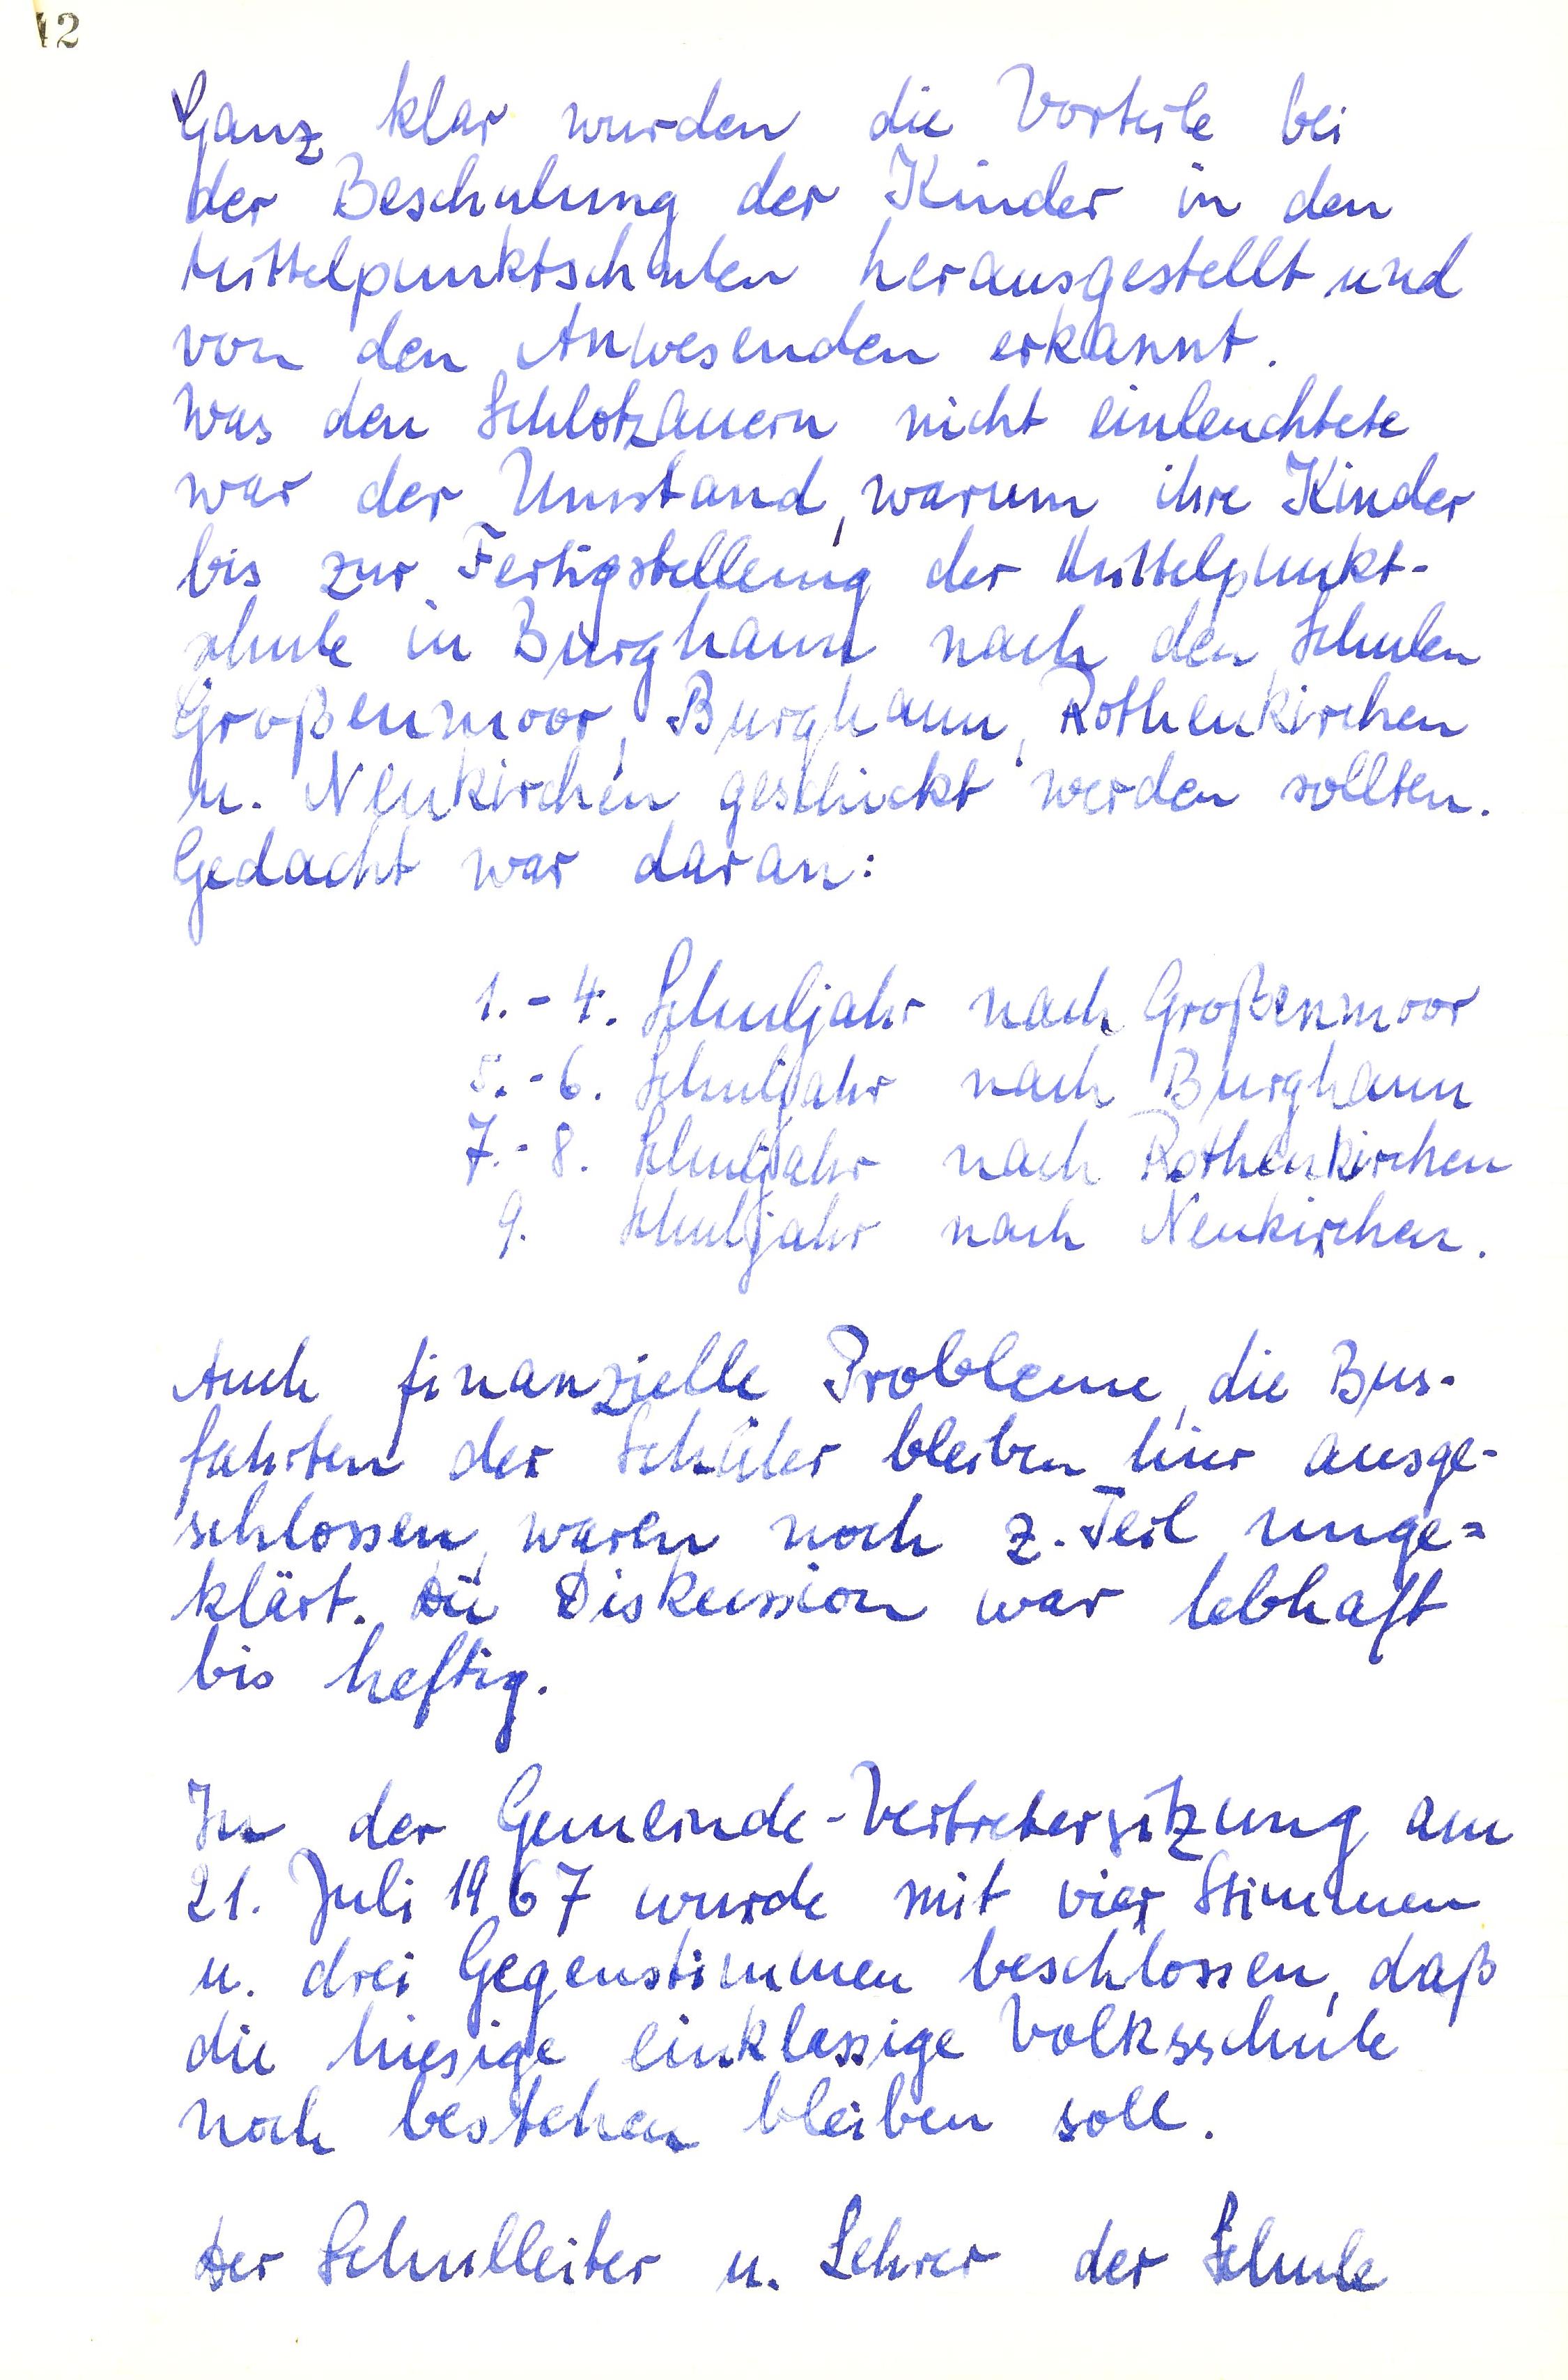 12
Ganz klar wurden die Vorteile bei
der Beschulung der Kinder in den
Mittelpunktschulen herausgestellt und
von den Anwesenden erkannt.
Was den Schlotzauern nicht einleuchtete
war der Umstand, warum ihre Kinder
bis zur Fertigstellung der Mittelpunkt-
schule in Burghaun nach den Schulen
Großenmoor, Burghaun, Rothenkirchen
u. Neukirchen geschickt werden sollten.
Gedacht war daran:
1.-4. Schuljahr nach Großenmoor
5.-6. Schuljahr nach Burghaun
7.-8. Schuljahr nach Rothenkirchen
9. Schuljahr nach Neukirchen.
Auch finanzielle Probleme, die Bus-
fahrten der Schüler bleiben hier ausge-
schlossen, waren noch z. Teil unge=
klärt. Die Diskussion war lebhaft
bis heftig.
In der Gemeinde-Vertretersitzung am
21. Juli 1967 wurde mit vier Stimmen
u. drei Gegenstimmen beschlossen, daß
die hiesige einklassige Volksschule
noch bestehen bleiben soll.
Der Schulleiter u. Lehrer der Schule